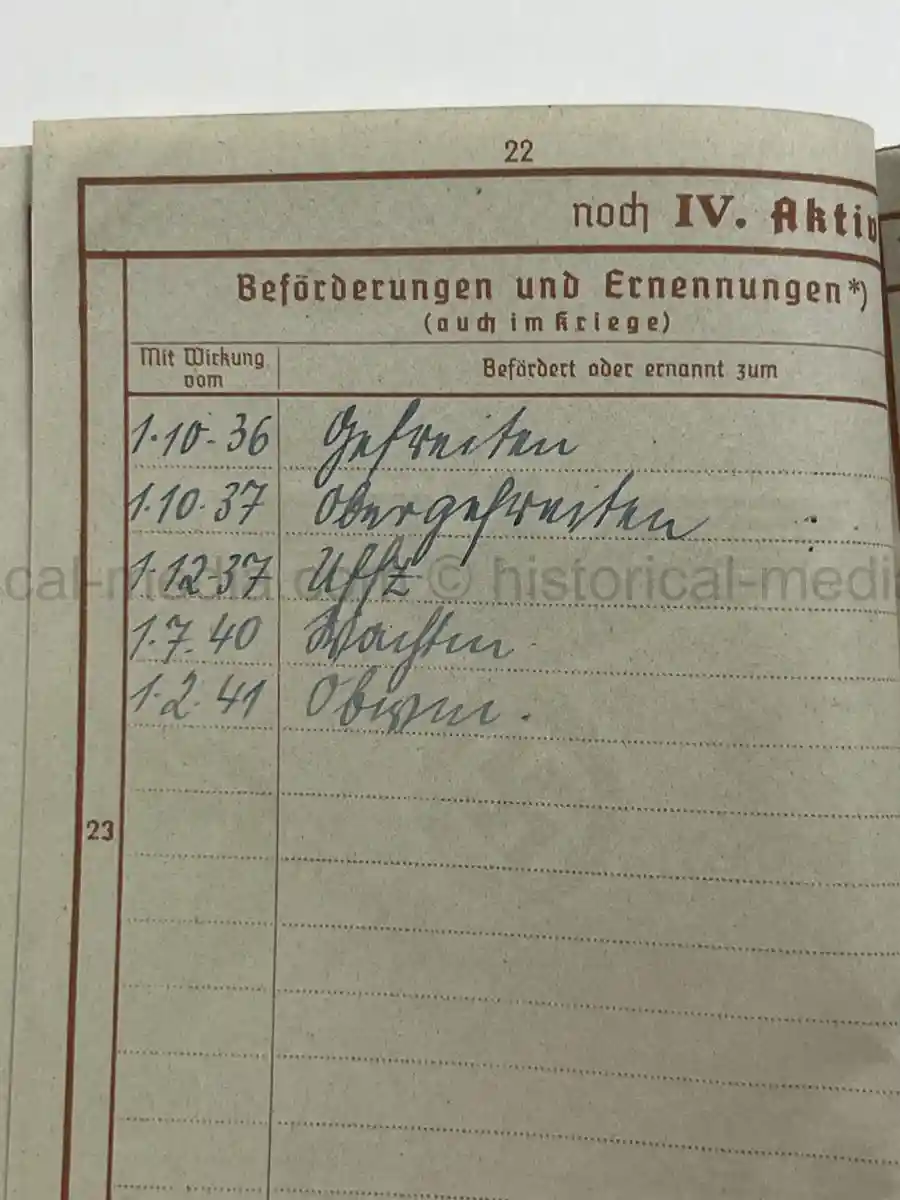 22
noch IV. Aktiv
Beförderungen und Ernennungen*)
(auch im Kriege)
Mit Wirkung vom
Befördert oder ernannt zum
1.10.36 Gefreiten
1.10.37 Obergefreiten
1.12.37 Uffz
1.7.40 Wachtm
1.2.41 Obwm.
23
© historical-media